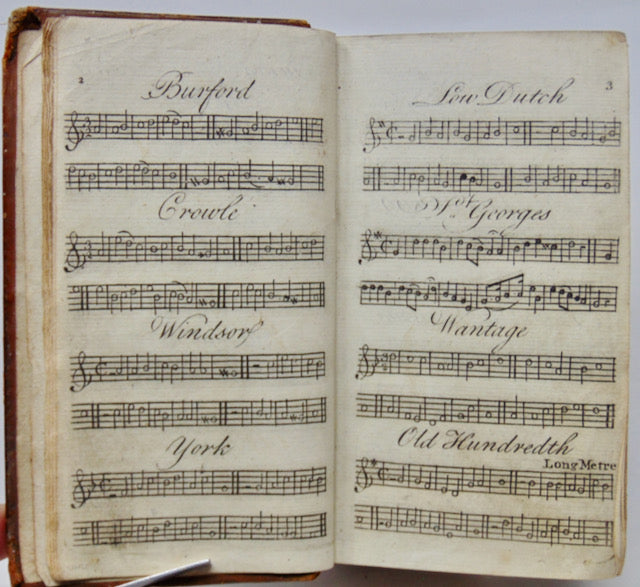 2
Burford
Crowle
Windsor
York
3
Low Dutch
St Georges
Wantage
Old Hundredth
Long Metre